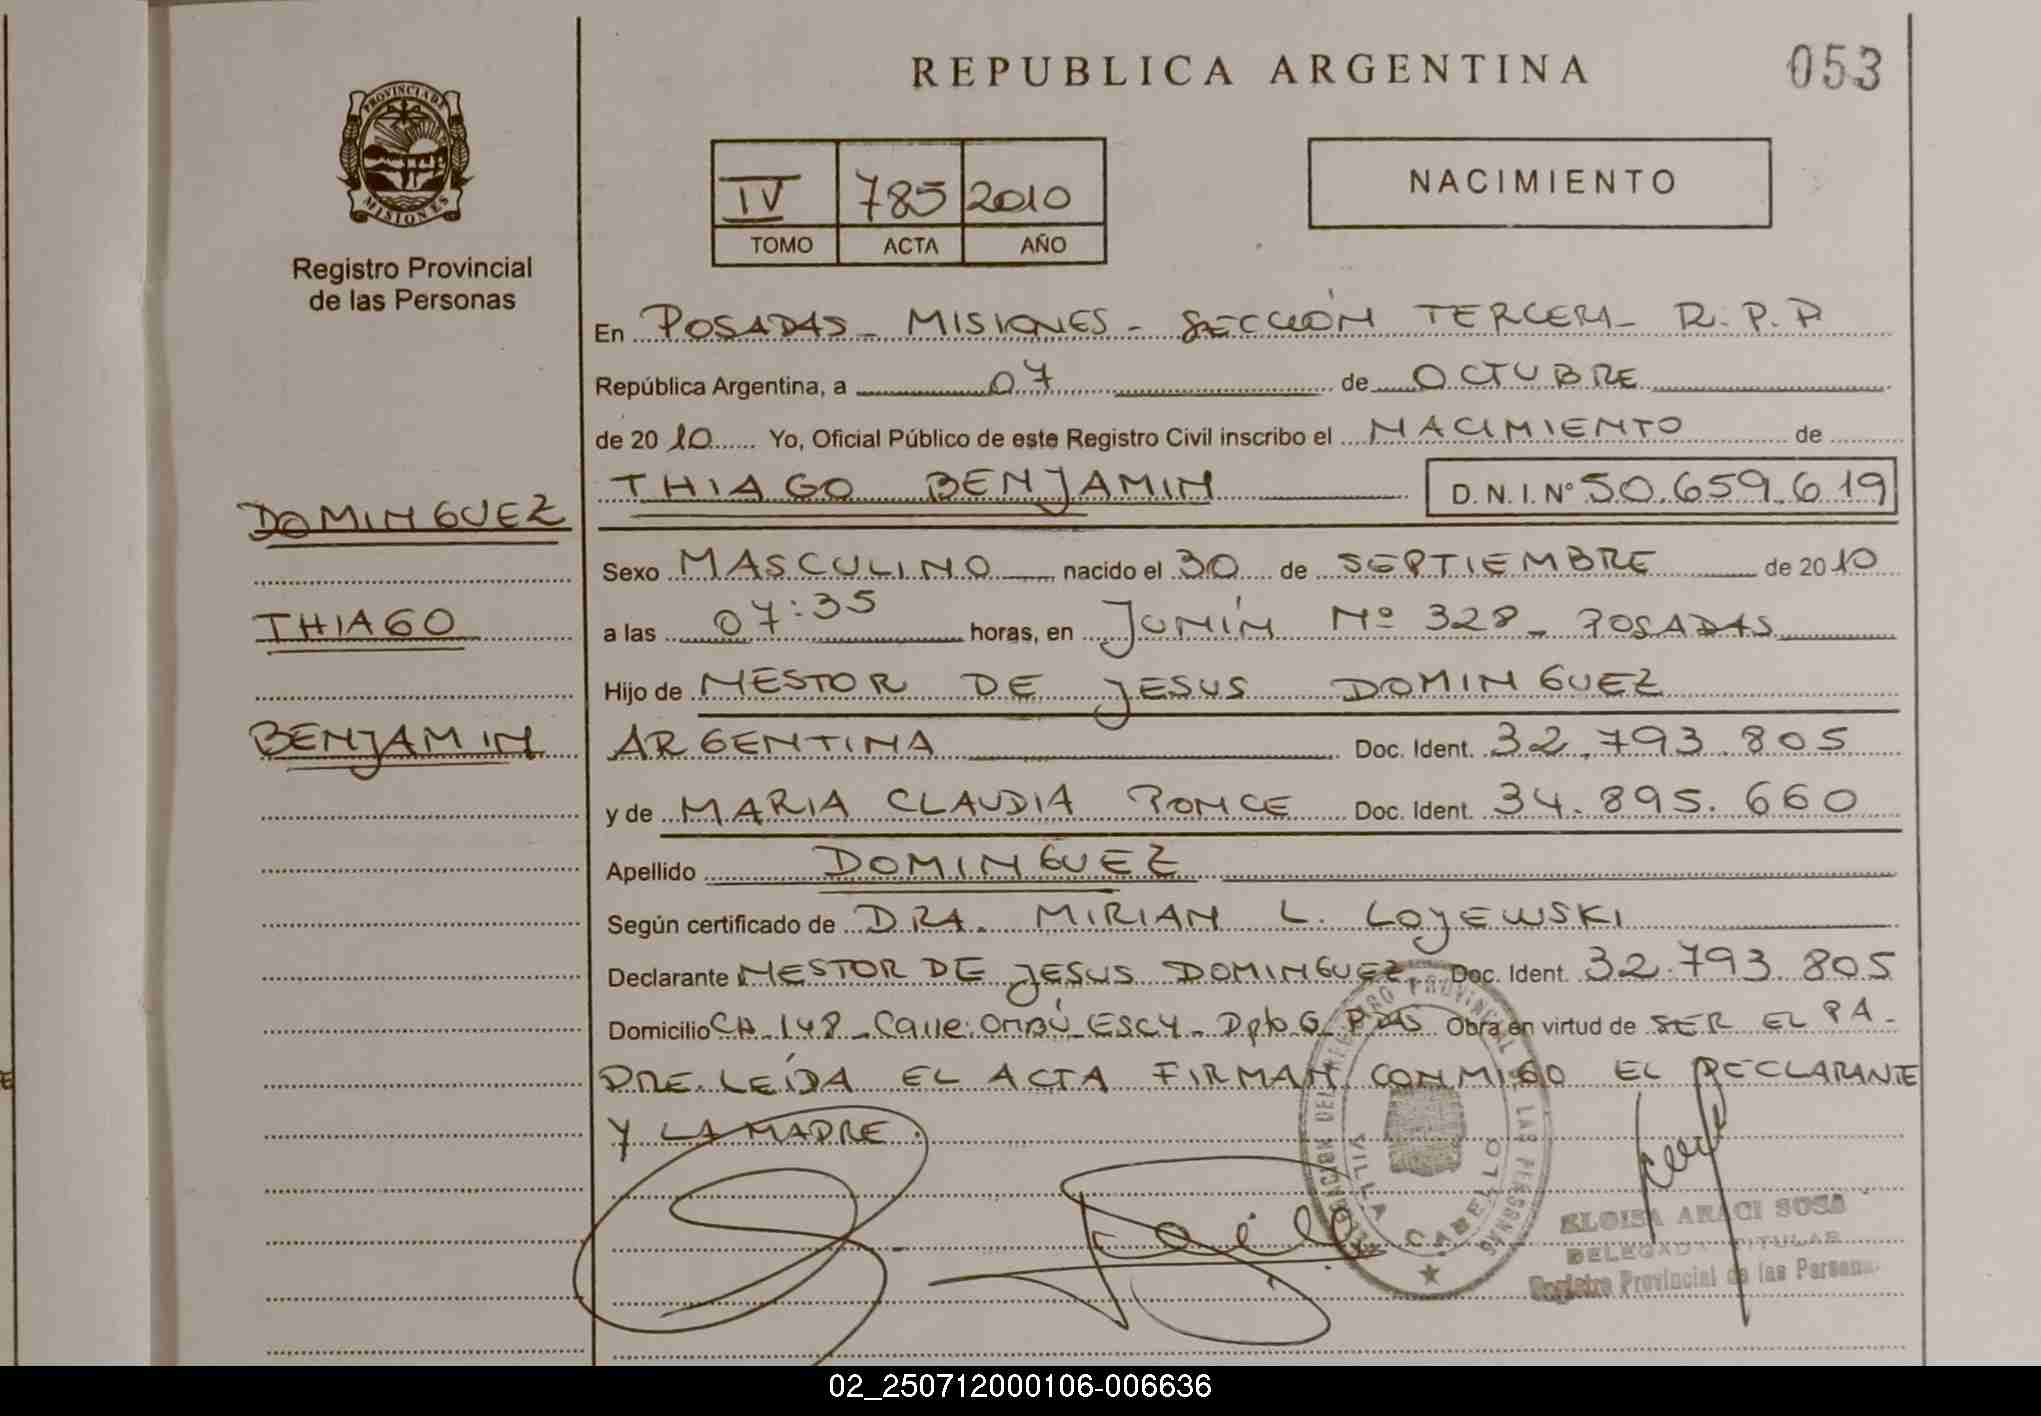 REPUBLICA ARGENTINA
053
PROVINCIA DE
MISIONES
Registro Provincial
de las Personas
IV 785 2010
TOMO ACTA AÑO
NACIMIENTO
En POSADAS - MISIONES - SECCIÓN TERCERA - R.P.P
República Argentina, a 07 de OCTUBRE
de 2010 Yo, Oficial Público de este Registro Civil inscribo el NACIMIENTO de
THIAGO BENJAMIN D.N.I.Nº 50.659.619
DOMINGUEZ
THIAGO
BENJAMIN
Sexo MASCULINO nacido el 30 de SEPTIEMBRE de 2010
a las 07:35 horas, en JUNÍN Nº 328 - POSADAS
Hijo de NESTOR DE JESUS DOMINGUEZ
ARGENTINA Doc. Ident. 32.793.805
y de MARIA CLAUDIA PONCE Doc. Ident. 34.895.660
Apellido DOMINGUEZ
Según certificado de DRA. MIRIAN L. LOJEWSKI
Declarante NESTOR DE JESUS DOMINGUEZ Doc. Ident. 32.793.805
Domicilio CH. 148 - Calle: OMBÚ ESC4 - Dpto G. PDAS Obra en virtud de SER EL PA-
DRE. LEÍDA EL ACTA FIRMAN CONMIGO EL DECLARANTE
Y LA MADRE.
REGISTRO PROVINCIAL DE LAS PERSONAS
VILLA CABELLO
ELOISA ARACI SOSA
DELEGADA TITULAR
Registro Provincial de las Personas
02_250712000106-006636